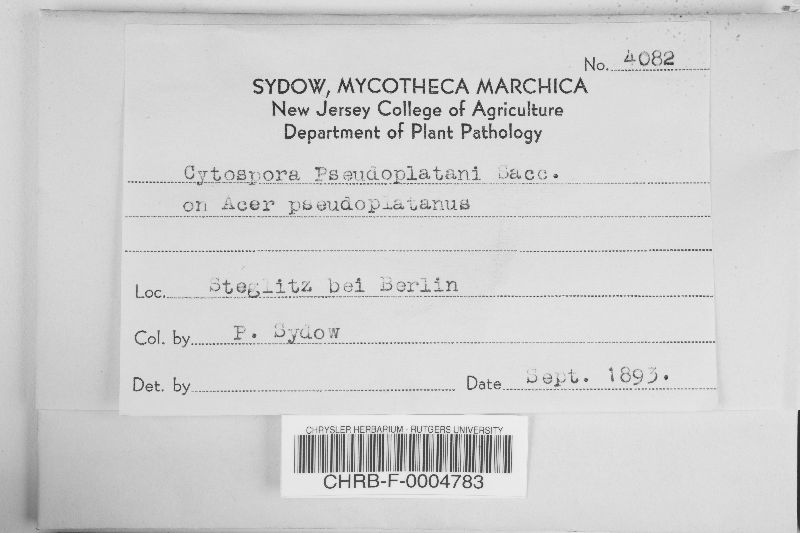 No. 4082
SYDOW, MYCOTHECA MARCHICA
New Jersey College of Agriculture
Department of Plant Pathology
Cytospora Pseudoplatani Sacc.
on Acer pseudoplatanus
Loc. Steglitz bei Berlin
Col. by P. Sydow
Det. by Date Sept. 1893.
CHRYSLER HERBARIUM - RUTGERS UNIVERSITY
CHRB-F-0004783